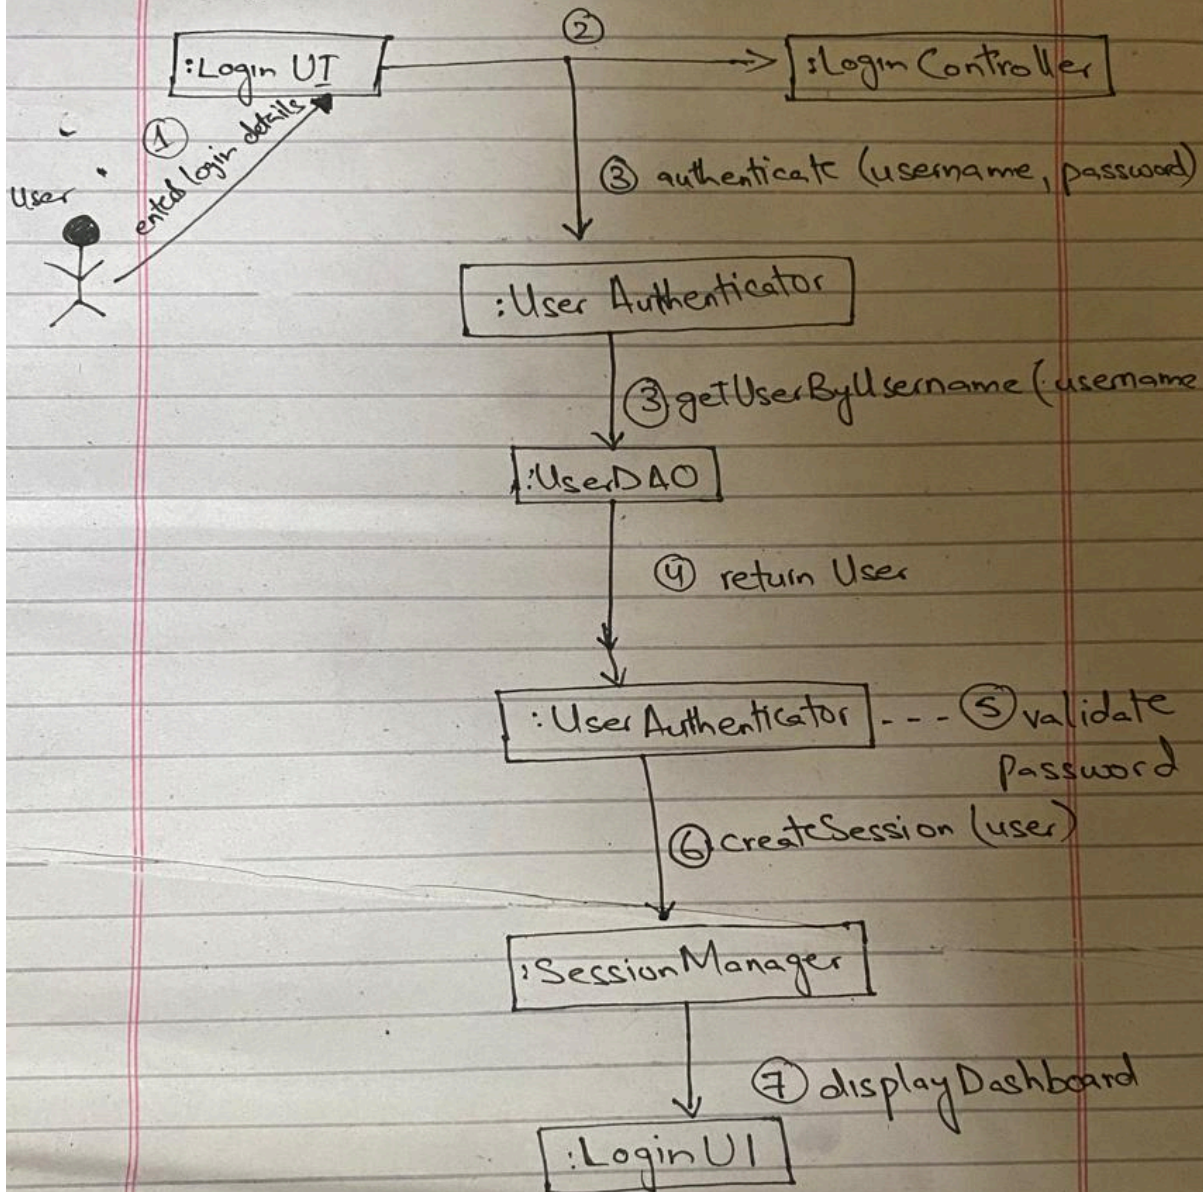 ②
:Login UI
:Login Controller
①
ented login details
User
③ authenticate (username, password)
:User Authenticator
③ getUserByUsername (username
:UserDAO
④ return User
:UserAuthenticator --- ⑤ validate
password
⑥ createSession (user)
:SessionManager
⑦ displayDashboard
:LoginUI